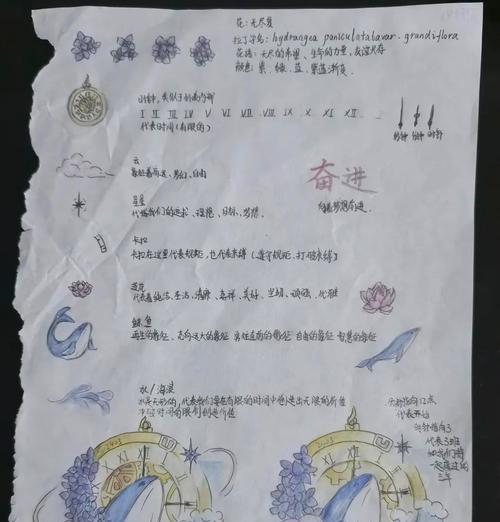 花：无尽夏
拉丁学名：hydrangea paniculata var. grandiflora
花语：无尽的希望、生命的力量、友谊长存
颜色：紫、绿、蓝、紫蓝渐变
时钟，
I II III IV V VI VII VIII IX X XI XII
代表时间（有限的）
秒针 分针 时针
云
象征着高远、梦幻、自由
奋进
向着梦想奋进
星星
代表我们的追求、理想、目标、梦想
卡拉
卡拉在这里代表规矩，也代表束缚（遵守规矩、打破束缚）
莲花
代表着纯洁、圣洁、清廉、吉祥、美好、坚韧、谦虚、优雅
鲸鱼
再生的象征、志向远大的象征 自由的象征 智慧的象征
水/海浪
水是无形的，代表我们要在有限的时间中创造出无限的价值
冲破时间的限制创造价值
分针指向12点
代表开始
时针指向3
代表3班
三年
2023
2023